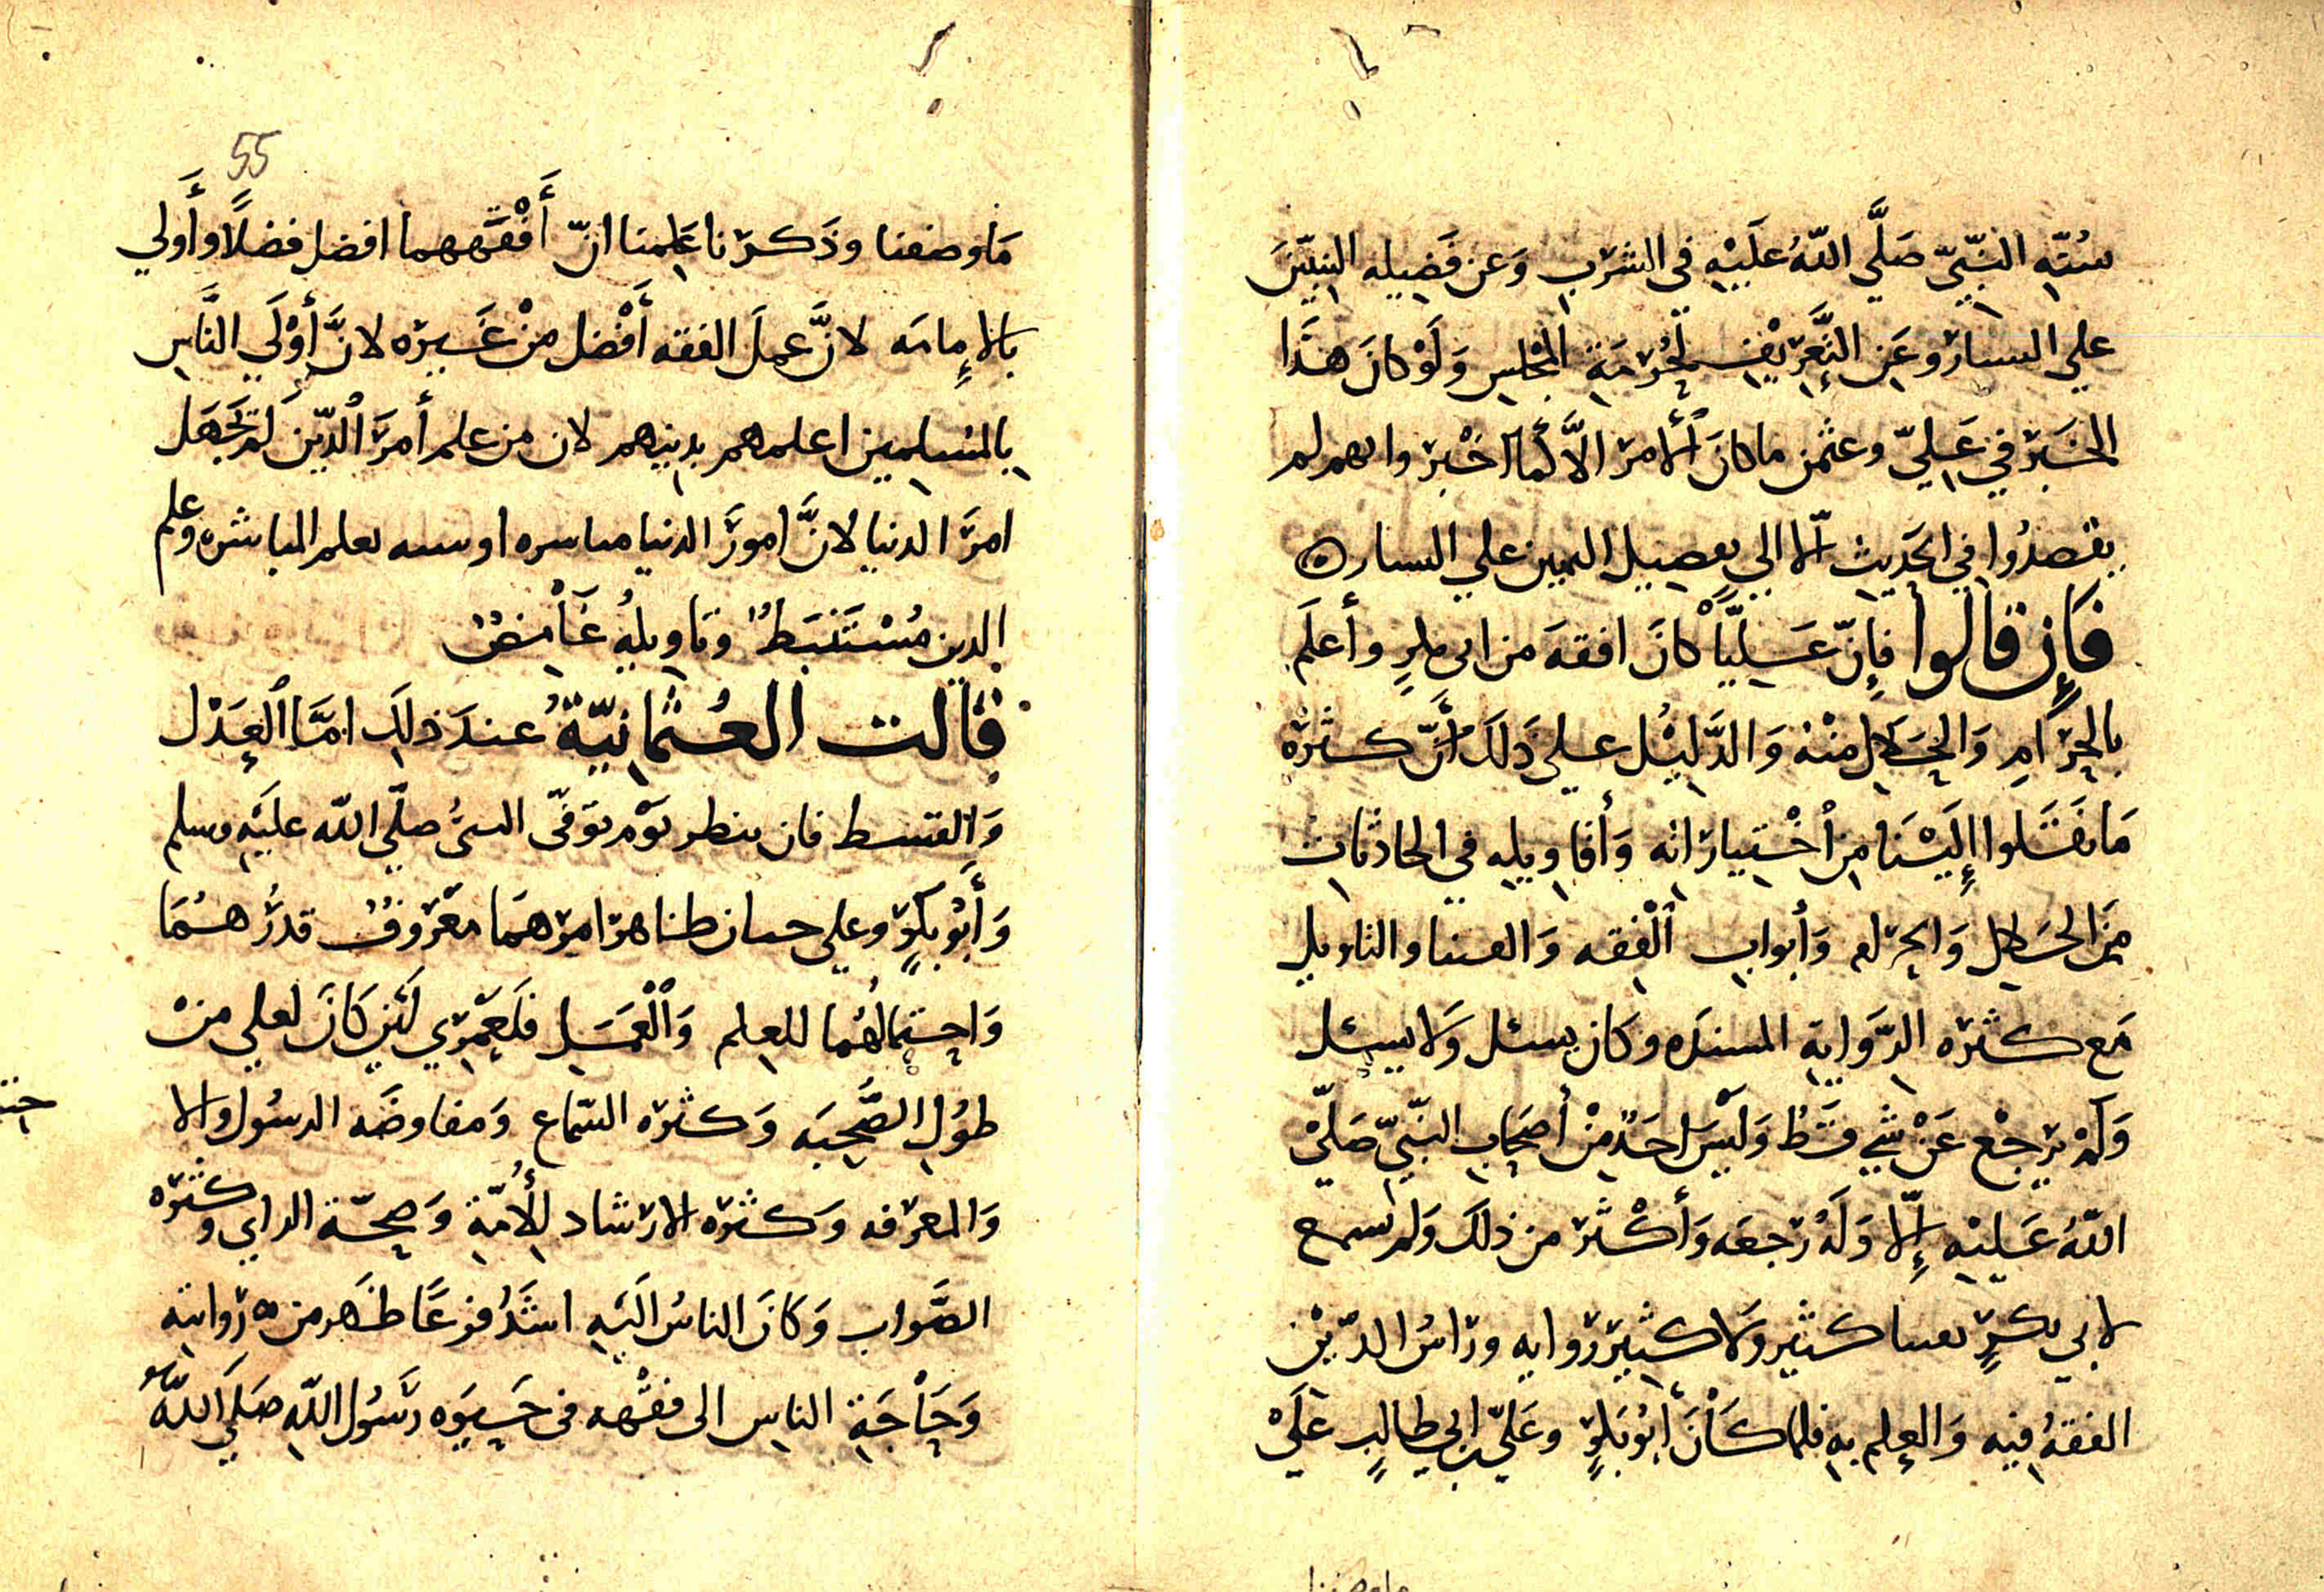 سُنّتِهِ النبيّ صَلَّي اللهُ علَيْهِ في الشرب وَعن فَضيله اليمين
علي اليسار وعَن التَّعريف لحُرمَةِ المجلس وَلَوْ كانَ هَذَا
الخبر في عَليّ وعثمن ما كانَ الأمر الاَّ كما اخبر وانهم لم
يقصدُوا في الحَديث الّا الي تفضيل اليمين علي اليسار ه
فَإِن قالوا فإنّ عَليًّا كانَ افقهَ من ابي بكرٍ وأعلَم
بالحرَامِ وَالحَلالِ منْه وَالدَّليْل علي ذَلكَ أنَّ كثرَه
مَا نَقَلوا إلَيْنَا من اخْتياراته وَأقاويله في الحادثات
منَ الحَلال وَالحرام وَأبواب الْفقه وَالفتيا والتاويل
مَع كثرَه الرّوَايةِ المسنده وكان يسئل وَلا يسئل
وَلَم يرجْع عَنْ شي قَطُّ وَلَيْسَ احَدٌ منْ أصحاب النّبيّ صَلّيْ
اللهُ عَليْه إلّا وَلَهُ رَجعَه وَأكْثَر من ذلكَ وَلم نسمع
لابي بكرٍ بفتيا كثير وَلا كثير روايه ورَاسُ الدّيْن
الفقهُ فيه وَالعِلم بهِ فلمّا كَانَ أبُو بكرٍ وعَليّ بن ابي طالبٍ عَلَيْ
ما وصفنا
55
مَا وصَفنا وذَكرْنا عَلِمنا انّ أَفْقَههما افضل فضلاً وأَولي
بالاِمامَه لانَّ عملَ الفقه أَفْضل منْ غَيره لانَّ أوْلَي النَّاسِ
بالمسلمين اعلمهم بدينهم لان من علم أمرَ الدّين لَم يَجْهَل
امرَ الدنيا لانَّ امورَ الدنيا مباشره او شبيه بعلم المباشره وعلم
الدين مُسْتَنبَطٌ وتاويلُه غَامضٌ
قالت العُثمانيّةُ عندَ ذلكَ امَّا العَدْل
وَالقسط فان ينظر يَوْم تَوَفّى النبيُّ صلّي الله علَيْهِ وسلم
وَأَبُو بكرٍ وعلي حيان ظاهر امرهمَا معْروفٌ قدرُهُمَا
وَاحتمالُهُما للعِلم وَالْعَمَل فلَعَمْري لَئن كَانَ لعلي منْ
طوُلِ الصُّحبَه وَكثرَه السّماع وَمفاوضَه الرسُول والا
وَالمعرفه وَكثرَه الارشاد للأُمّةِ وَصحّة الراي وكثره
الصَّواب وَكَانَ الناسُ الَيْه اشَدُ فزعًا ظَهر من روايته
وَحَاْجَةِ الناس الى فقْهه في حَيوَه رَسُول اللهِ صَلَي اللهُ